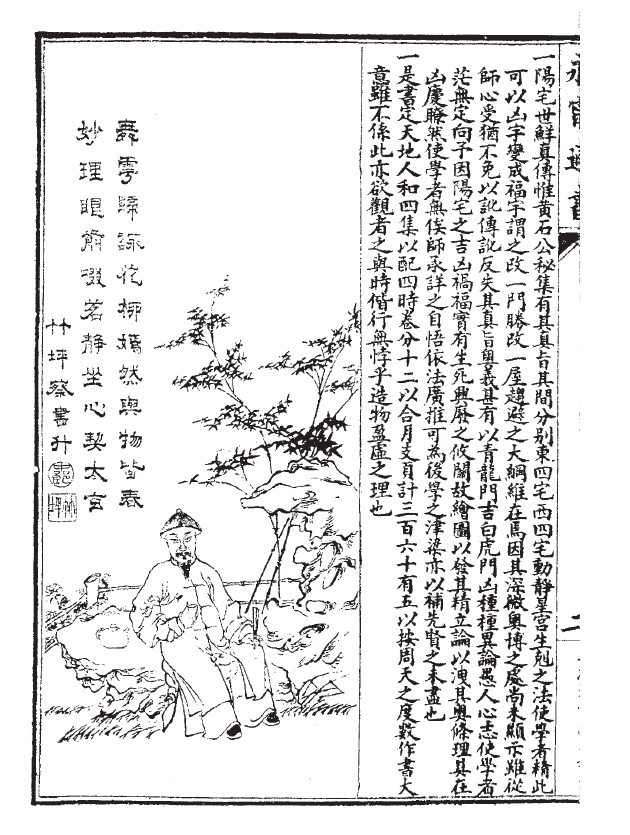 一陽宅世鮮真傳惟黄石公秘集有其真旨其間分别東四宅西四宅動靜星宫生剋之法使學者精此
可以凶字變成福字謂之改一門勝改一屋趨避之大綱維在焉因其深微奥博之處尚未顯示雖從
師心受猶不免以訛傳訛反失其真旨奥義甚有以青龍門吉白虎門凶種種異論愚人心志使學者
茫無定向予因陽宅之吉凶禍福實有生死興廢之攸關故繪圖以發其精立論以洩其奥條理具在
凶慶瞭然使學者無俟師承詳之自悟依法廣推可為後學之津梁亦以補先賢之未盡也
一是書定天地人和四集以配四時卷分十二以合月支頁計三百六十有五以按周天之度數作書大
意雖不係此亦欲觀者之與時偕行無悖乎造物盈虚之理也
舞雩歸詠花柳嫣然與物皆春
妙理眼前啜茗靜坐心契太玄
竹坪蔡書升